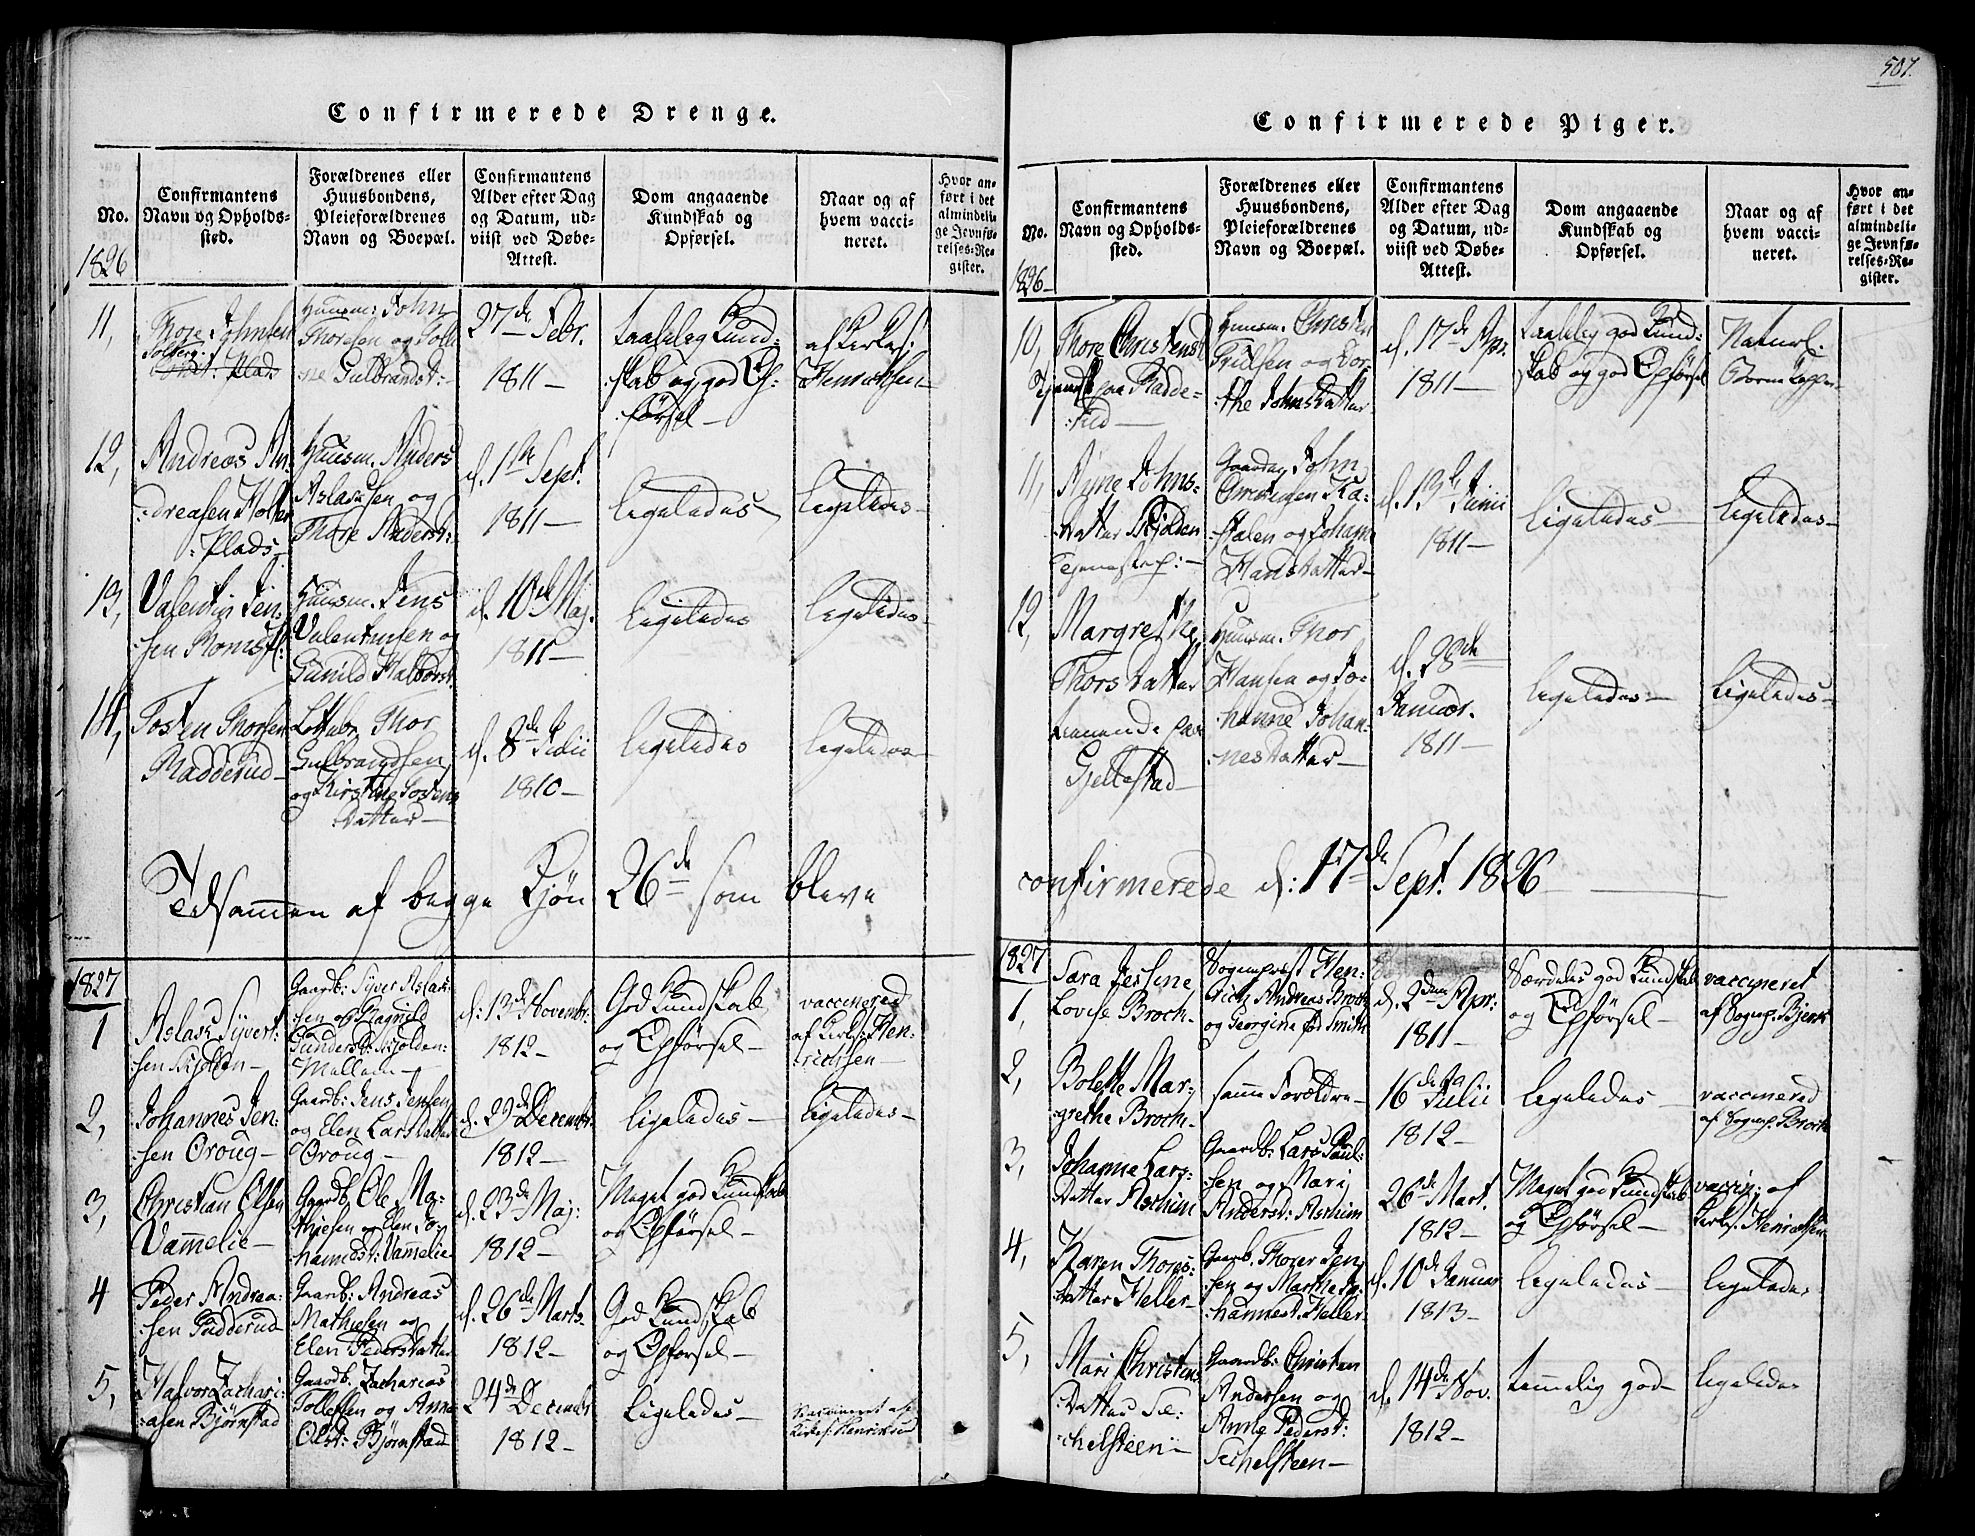 507.
Confirmerede Drenge.
No.
Confirmantens
Navn og Opholds-
sted.
Forældrenes eller
Huusbondens,
Pleieforældrenes
Navn og Boepæl.
Confirmantens
Alder efter Dag
og Datum, ud-
viist ved Døbe-
Attest.
Dom angaaende
Kundskab og
Opførsel.
Naar og af
hvem vacci-
neret.
Hvor an-
ført i det
almindeli-
ge Jevnfø-
relses-Re-
gister.
1826
11,
Thore Johnsen
Solberg:
Plads
Huusm: John
Thoresen og
Gulbrandsd:
27de Febr.
1811 —
taalelig Kund-
:skab og god Op-
:førsel —
af Kirkes:
Henrichsen —
12,
Andreas An-
:dreasen Holter
:Plads —
Huusm. Anders
Aslaksen og
Thore Anderst:
d. 1te Sept.
1811 —
ligeledes —
ligeledes —
13,
Valentin Jen-
:sen
Huusm. Jens
Valentinsen og
Gunild Halvorst.
d. 10de Maj.
1811 —
ligeledes
ligeledes —
14,
Tosten Thorsen
Radderud —
Thor
Gulbrandsen
og Kirstine Tostens
:datter —
d. 8de Julii
1810 —
ligeledes
ligeledes
Tilsammen af begge Kjøn 26de som bleve
1827
1
Aslak Syvert-
:sen Skjolden —
Gaardb: Syver Aslak-
:sen og Ragnild
Gunderst: Skjolden:
d: 13de Novembr.
1812 —
God Kundskab
og Opførsel —
vaccinered
af Kirks: Hen-
:richsen —
2,
Johannes Jen-
:sen Oroug —
Gaardb: Jens Jensen
og Elen Larsdatter
Oroug —
d. 29de Decembr.
1812 —
ligeledes —
ligeledes —
3,
Christian Olsen
Vammelie —
Gaardb. Ole Ma-
:thiesen og Elen Jo-
:hannesd: Vammelie
d. 23de Maj:
1812 —
Meget god Kundskab
og Opførsel —
4
Peder Andrea-
:sen Pudderud
Gaardb: Andreas
Mathiesen og
Elen Pedersdatter
d. 26de Marts
1812 —
God Kundskab
og Opførsel —
5,
Halvor Zachari-
:asen Bjørnstad
Gaardb. Zacharias
Tollefsen og Anne
Olsd: Bjørnstad
24de Decembr
1812 —
ligeledes —
Vaccineret af
Kirkes: Henriksen
Confirmerede Piger.
No.
Confirmantens
Navn og Opholds-
sted.
Forældrenes eller
Huusbondens,
Pleieforældrenes
Navn og Boepæl.
Confirmantens
Alder efter Dag
og Datum, ud-
viist ved Døbe-
Attest.
Dom angaaende
Kundskab og
Opførsel.
Naar og af
hvem vacci-
neret.
Hvor an-
ført i det
almindeli-
ge Jevnfø-
relses-Re-
gister.
1826 —
10,
Thore Christensd
Tjenende paa Radde-
:rud —
Huusm. Christen
og Dor-
:the Johnsdatter
d. 17de Apr.
1811 —
taalelig god Kund-
skab og god Opførsel
Naturl:
Børne Kopper —
11,
Johns-
datter Skjolden
Gaardm John
og Johanne
Hansdatter —
d. 13de Junii
1811 —
ligeledes —
ligeledes —
12,
Margrethe
Thorsdatter
tienende paa
Gjellestad —
Huusm. Thor
Hansen og Jo-
:hanne Johan-
:nesdatter —
d. 28de
Januar.
1811 —
ligeledes —
ligeledes —
confirmerede d: 17de Sept. 1826 —
1827
1,
Sara Jessine
Lovise Broch —
Sogneprest Hen-
rich Andreas Broch
og Georgine fød Smith
d. 2den Apr:
1811 —
Særdeles god Kundskab
og Opførsel —
vaccineret
af Sognp. Bjerk
2,
Bolette Mar-
:grethe Broch —
samme Forældre —
16de Julii
1812 —
ligeledes —
vaccinered
af Sognp. Broch
3,
Johanna Lars-
datter Aschim
Gaardb: Lars Paul-
:sen og Mari
Anderst: Aschim
26de Mart.
1812 —
Meget god Kundskab
og Opførsel —
vaccin: af
Kirks. Henrichsen
4,
Karen Thors-
datter Heller —
Gaardb. Thorer Jen-
:sen og Marthe Jo-
:hannest. Heller —
d. 10de Januar
1813 —
ligeledes
ligeledes
5,
Mari Christens
datter Se-
:chelsteen —
Gaardb: Christen
Andersen og
Anne Pederst:
Sechelsteen —
d. 14de Nov.
1812 —
temmelig god —
ligeledes